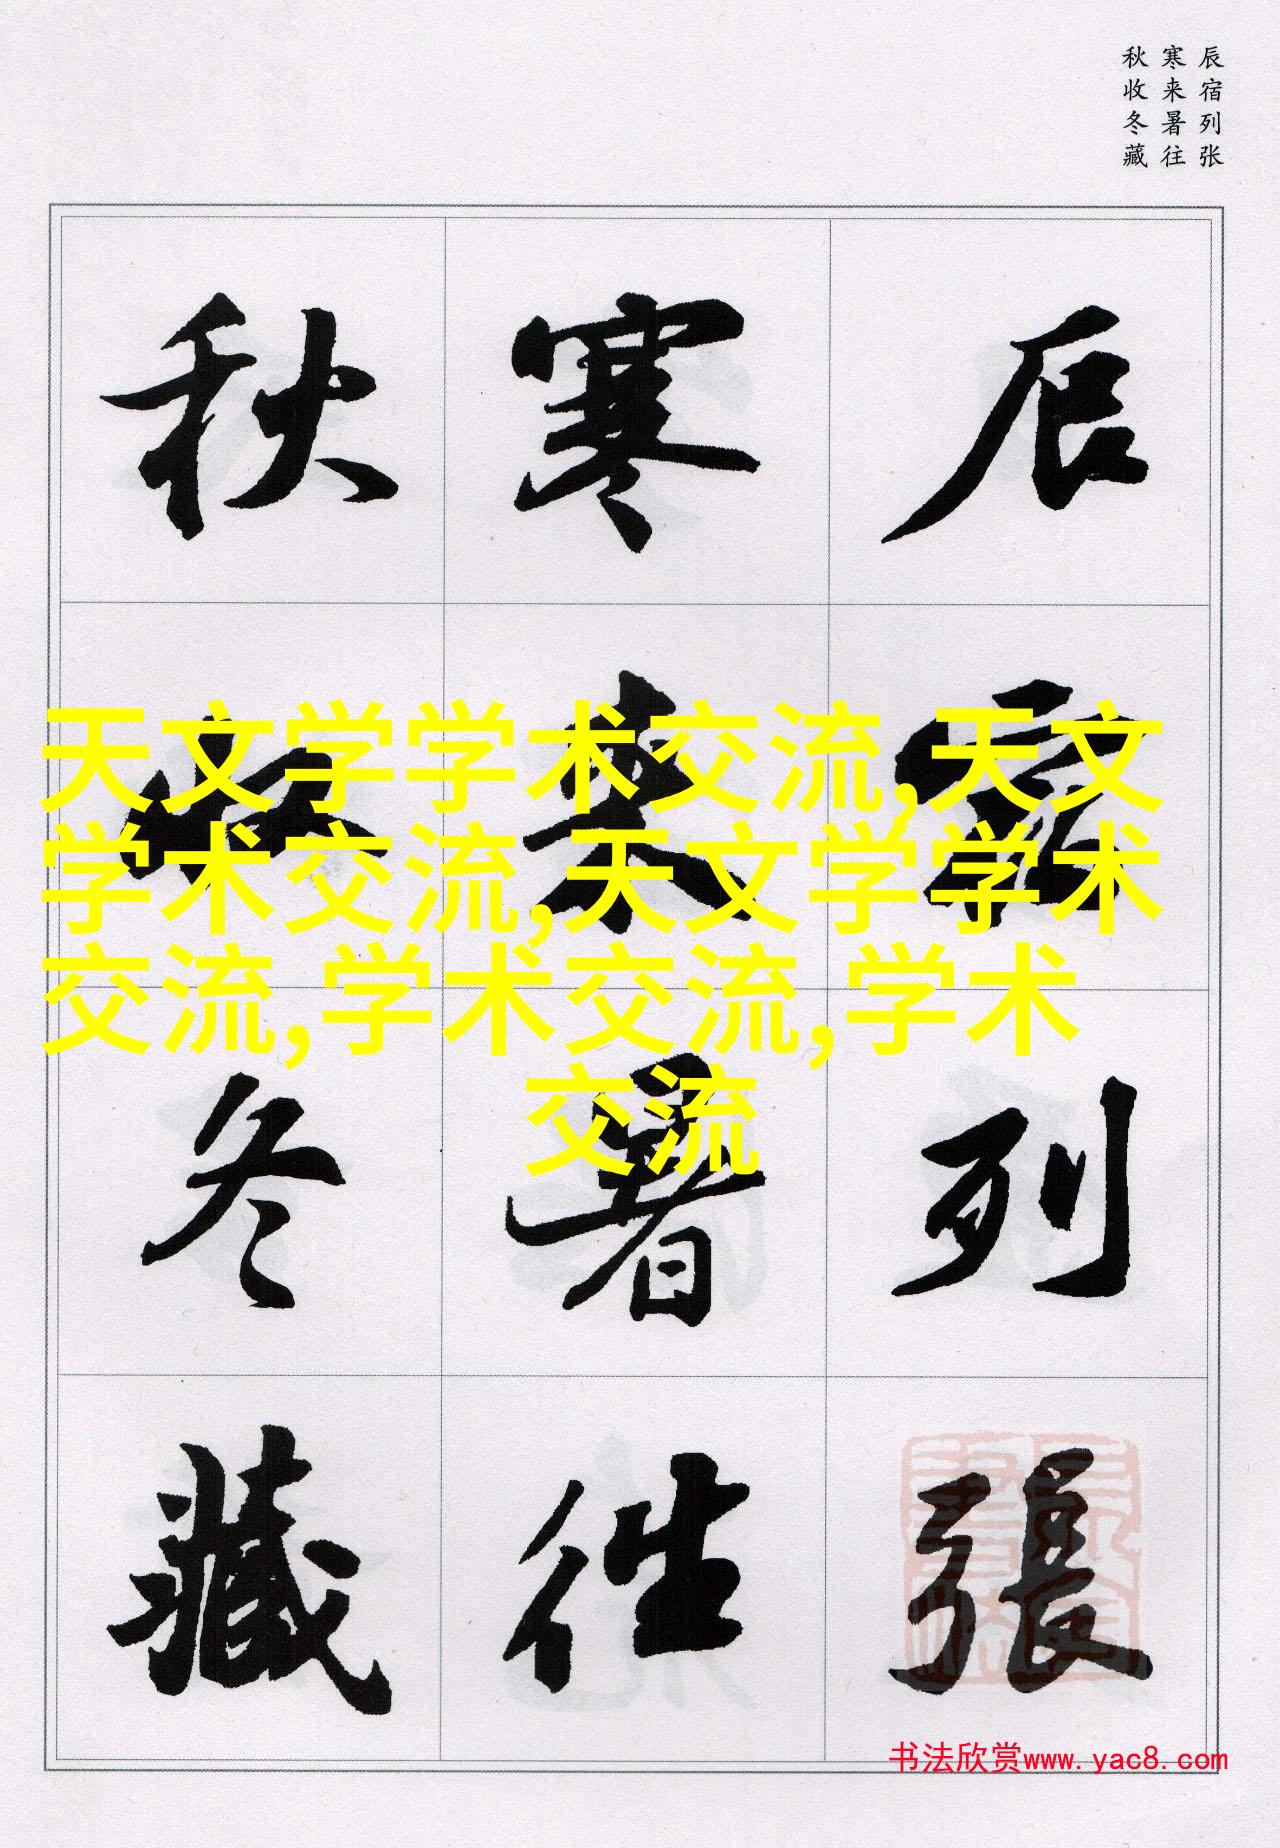 辰宿列张
寒来暑往
秋收冬藏
辰宿列張
寒来暑往
秋收冬藏
天文学学术交流,天文
学术交流,天文学学术
交流,学术交流,学术
交流
书法欣赏www.yac8.com